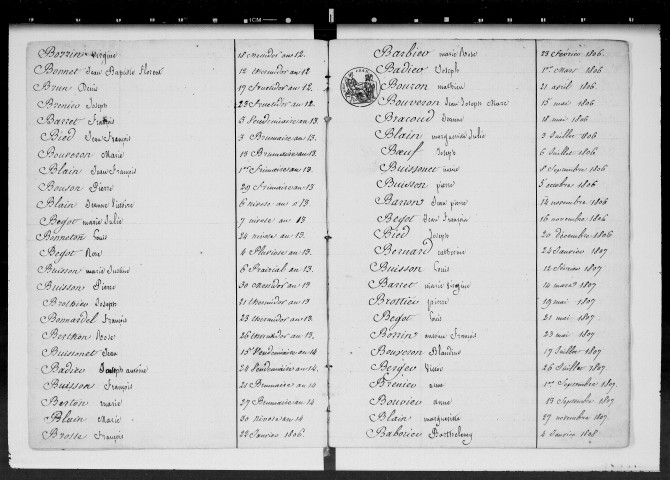 Borrin Virginie 18 Messidor an 12.
Bonnet Jean Baptiste Florent 12 thermidor an 12
Brun Denis 19 Fructidor an 12
Brenier Joseph 23 Fructidor an 12
Barret François 5 Vendémiaire an 13
Bied Jean François 3 Brumaire an 13
Bouveron Marie 13 Brumaire an 13
Blain Jean François 1er Frimaire an 13
Bouson Pierre 29 Frimaire an 13
Blain Jeanne 6 nivose an 13
Begot marie Julie 7 nivose an 13
Bonneton Louis 24 nivose an 13
Begot Rose 4 Pluviose an 13
Buisson marie Justine 6 Prairial an 13
Buisson Pierre 30 Messidor an 13
Brothier Joseph 21 thermidor an 13
Bonnardel François 23 thermidor an 13
Berthon Rose 26 thermidor an 13
Buissonet Jean 15 Vendémiaire an 14
Badier Joseph antoine 24 Vendémiaire an 14
Buisson François 21 Brumaire an 14
Berton marie 27 Brumaire an 14
Blain Marie 30 nivose an 14
Brosse François 22 Janvier 1806
Barbier marie Rose 23 Février 1806
Badier Joseph 1er Mars 1806
Bouzon mathieu 21 avril 1806
Bouveron Jean Joseph 15 mai 1806
Bracoud 18 mai 1806
Blain marguerite Julie 3 Juillet 1806
Bœuf Joseph 6 Juillet 1806
Buissonet marie 8 Septembre 1806
Buisson pierre 5 octobre 1806
Barron Jean pierre 14 novembre 1806
Begot Jean François 16 novembre 1806
Bied Joseph 20 décembre 1806
Bernard catherine 24 Janvier 1807
Buisson Louis 12 Février 1807
Barret marie virginie 14 mars 1807
Brottier pierre 19 mai 1807
Begot Louis 21 mai 1807
Borrin François 23 mai 1807
Bouveron Claudine 17 Juillet 1807
Berger 26 Juillet 1807
Brenier anne 1er Septembre 1807
Bouvier anne 13 Septembre 1807
Blain marguerite 27 novembre 1807
Baborier Barthelemy 4 Janvier 1808